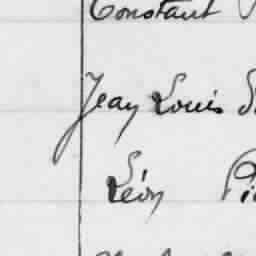 Constant
Jean Louis
Léon